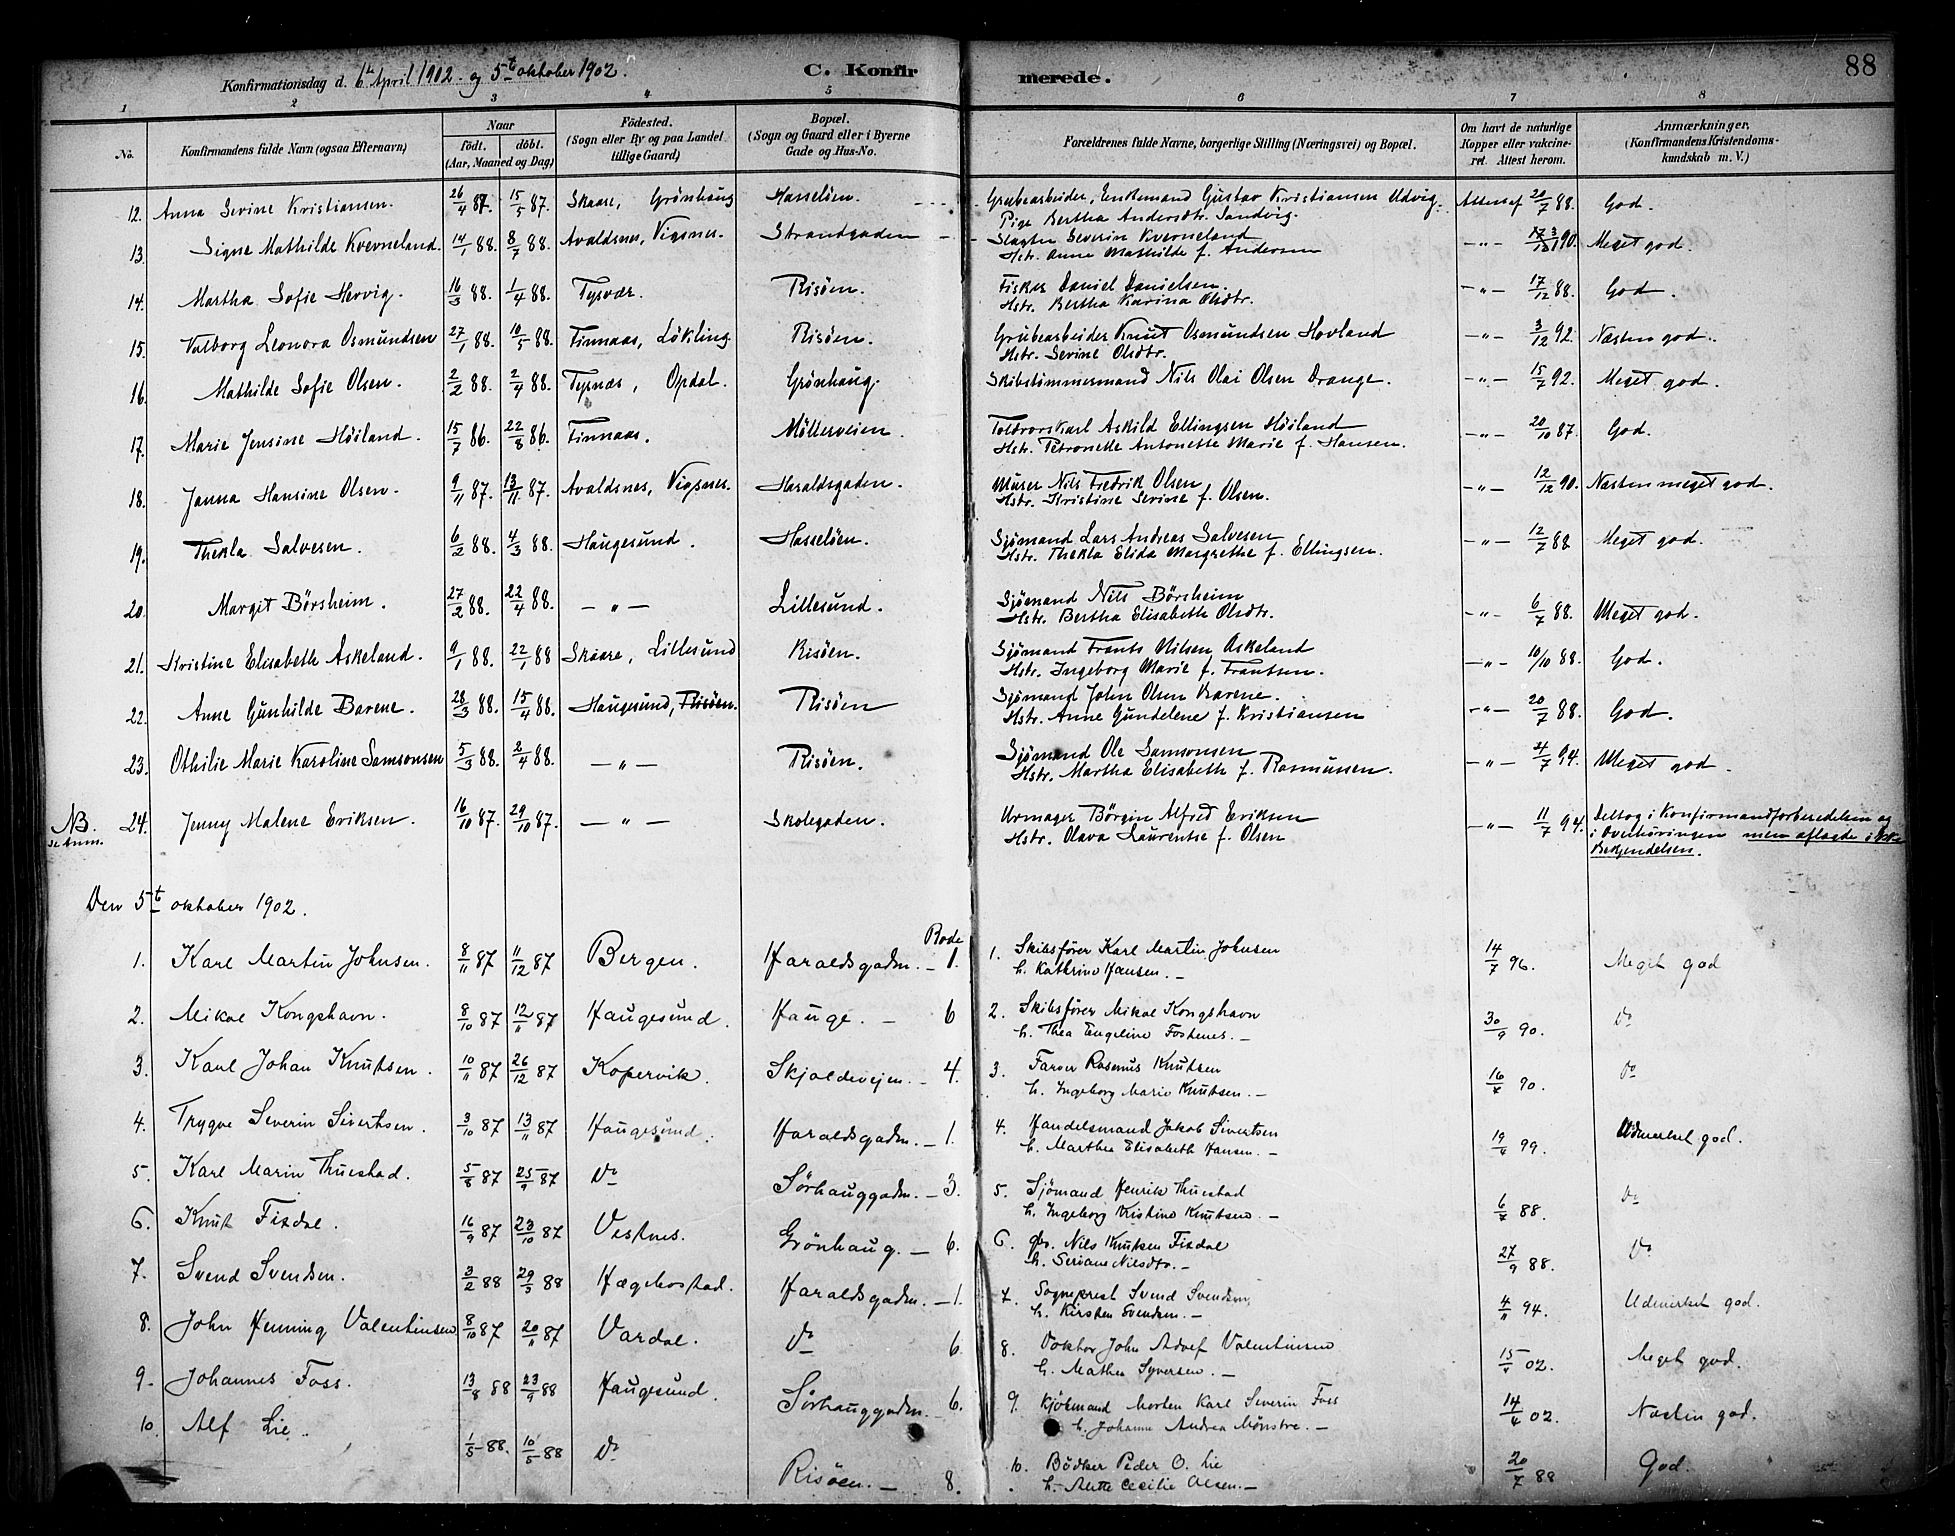 Konfirmationsdag d. 6te April 1902 og 5te oktober 1902.
C. Konfirmerede.
88
1 2 3 4 5 6 7 8
No. Konfirmandens fulde Navn (ogsaa Efternavn) Naar födt. döbt. (Aar, Maaned og Dag) Födested. (Sogn eller By og paa Landet tillige Gaard) Bopæl. (Sogn og Gaard eller i Byerne Gade og Hus-No. Forældrenes fulde Navne, borgerlige Stilling (Næringsvei) og Bopæl. Om havt de naturlige Kopper eller vakcineret. Attest herom. Anmærkninger. (Konfirmandens Kristendomskundskab m. V.)
12. Anna Serine Kristiansen. 26/4 87. 15/5 87. Skaare, Grönhaug Hasselöen. Grubearbeider, Enkemand Gustav Kristiansen Udvig. Attest af 20/7 88. God.
Pige Bertha Andersdtr. Sandvig.
13. Signe Mathilde Kverneland. 14/1 88. 8/7 88. Avaldsnes, Vigsnes. Strandgaden Slagter Severin Kverneland — " — 90. Meget god.
Hstr. Anne Mathilde f. Andersen
14. Martha Sofie Hervig. 16/3 88. 1/4 88. Tysvær. Risöen. Fisker Daniel Danielsen. — " — 17/12 88. God.
Hstr. Bertha Karina Olsdtr.
15. Valborg Leonora Osmundsen 27/1 88. 10/5 88. Finnaas, Lökling Risöen. Grubearbeider Knut Osmundsen Hovland — " — 3/12 92. Næsten god.
Hstr. Serine Olsdtr.
16. Mathilde Sofie Olsen. 2/2 88. 2/4 88. Tysnæs, Opdal. Grönhaug. Skibstömmermand Nils Olai Olsen Drange. — " — 15/7 92. Meget god.
17. Marie Jensine Höiland. 15/7 86. 22/8 86. Finnaas. Mölleveien. Toldrorskarl Askild Ellingsen Höiland — " — 20/10 87. God.
Hstr. Petronelle Antonette Marie f. Hansen.
18. Janna Hansine Olsen. 9/11 87. 13/11 87. Avaldsnes, Vigsnes. Haraldsgaden. Murer Nils Fredrik Olsen — " — 12/12 90. Næsten meget god.
Hstr. Kristine Serine f. Olsen.
19. Thekla Salvesen. 6/2 88. 4/3 88. Haugesund. Hasselöen. Sjömand Lars Andreas Salvesen — " — 12/7 88 Meget god.
Hstr. Thekla Elida Margrethe f. Ellingsen.
20. Margit Börsheim. 27/2 88. 22/4 88. — " — Lillesund. Sjömand Nils Börsheim — " — 6/7 88. Meget god.
Hstr. Bertha Elisabeth Olsdtr.
21. Kristine Elisabeth Askeland. 9/1 88. 22/1 88 Skaare, Lillesund Risöen. Sjömand Frants Nilsen Askeland — " — 10/10 88. God.
Hstr. Ingeborg Marie f. Frantsen.
22. Anne Gunhilde Barene. 28/3 88. 15/4 88. Haugesund, Risöen. Risöen Sjömand John Olsen Barene. — " — 20/7 88. God.
Hstr. Anne Gundelene f. Kristiansen
23. Othilie Marie Karoline Samsonsen 5/3 88. 2/4 88. — " — Risöen. Sjömand Ole Samsonsen — " — 4/7 94. Meget god.
Hstr. Martha Elisabeth f. Rasmussen.
NB. 24. Jenny Malene Eriksen. 16/10 87. 29/10 87. — " — Skolegaden. Urmager Börgin Alfred Eriksen — " — 11/7 94. Deltog i Konfirmandforberedelsen og
se anm. Hstr. Olava Laurentse f. Olsen i Overhöringen men aflagde ikke
Bekjendelsen.
Den 5te oktober 1902.
Rode
1. Karl Martin Johnsen. 8/11 87 11/12 87 Bergen. Haraldsgaden. — 1. 1. Skibsförer Karl Martin Johnsen 14/7 96. Meget god
h. Kathrine Hansen. —
2. Mikal Kongshavn. 8/10 87 12/11 87 Haugesund. Hauge. — 6 2. Skibsförer Mikal Kongshavn 30/9 90. Do
h. Thea Engeline Fostenes. —
3. Karl Johan Knutsen. 10/11 87 26/12 87 Kopervik. Skjoldevejen. — 4. 3. Farver Rasmus Knutsen 16/7 90. Do
h. Ingeborg Marie Knutsen. —
4. Trygve Severin Sivertsen. 3/10 87 13/11 87 Haugesund. Haraldsgaden. — 1. 4. Handelsmand Jakob Sivertsen 19/4 99. Udmerket god.
h. Marthea Elisabeth Hansen. —
5. Karl Marin Thuestad. 5/8 87 25/9 87 Do Sörhauggaden. — 3. 5. Sjömand Henrik Thuestad 6/7 88. Do
h. Ingeborg Kristine Knutsen. —
6. Knut Fixdal. 16/9 87 23/10 87 Vestnes. Grönhaug. — 6. 6. Gbr. Nils Knutsen Fixdal 27/9 88. Do
h. Seriane Nilsdtr. —
7. Svend Svendsen. 3/2 88 29/3 88 Hægebostad. Haraldsgaden. — 1. 7. Sogneprest Svend Svendsen 4/11 94. Udmerket god.
h. Kirsten Svendsen. —
8. John Henning Valentinsen 8/10 87 20/11 87 Vardal. Do 6. 8. Doktor John Adolf Valentinsen 15/4 02. Meget god.
h. Mathea Syversen. —
9. Johannes Foss. 13/8 88 23/9 88 Haugesund. Sörhauggaden. 6. 9. Kjöbmand Morten Karl Severin Foss 14/4 02. Næsten god.
h. Johanne Andrea Mönstre. —
10. Alf Lie. 1/5 88. 10/5 88 Do Risöen. — 8. 10. Bödker Peder O. Lie 20/7 88 God.
h. Alette Cecilie Olsen. —